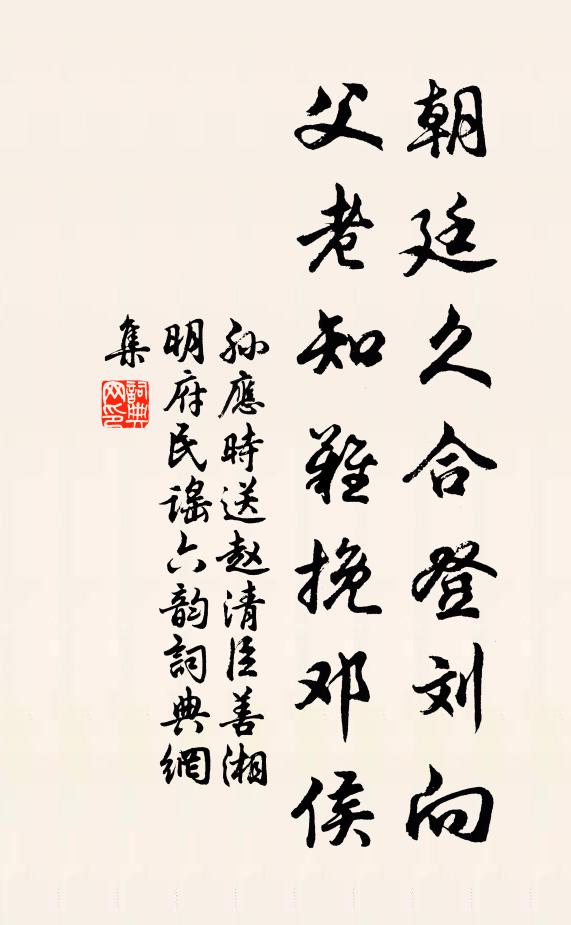 朝廷久合登刘向
父老知難挽邓侯
孙應時送赵清臣善湘
明府民谣六韵詞典網
集
詞典
网印